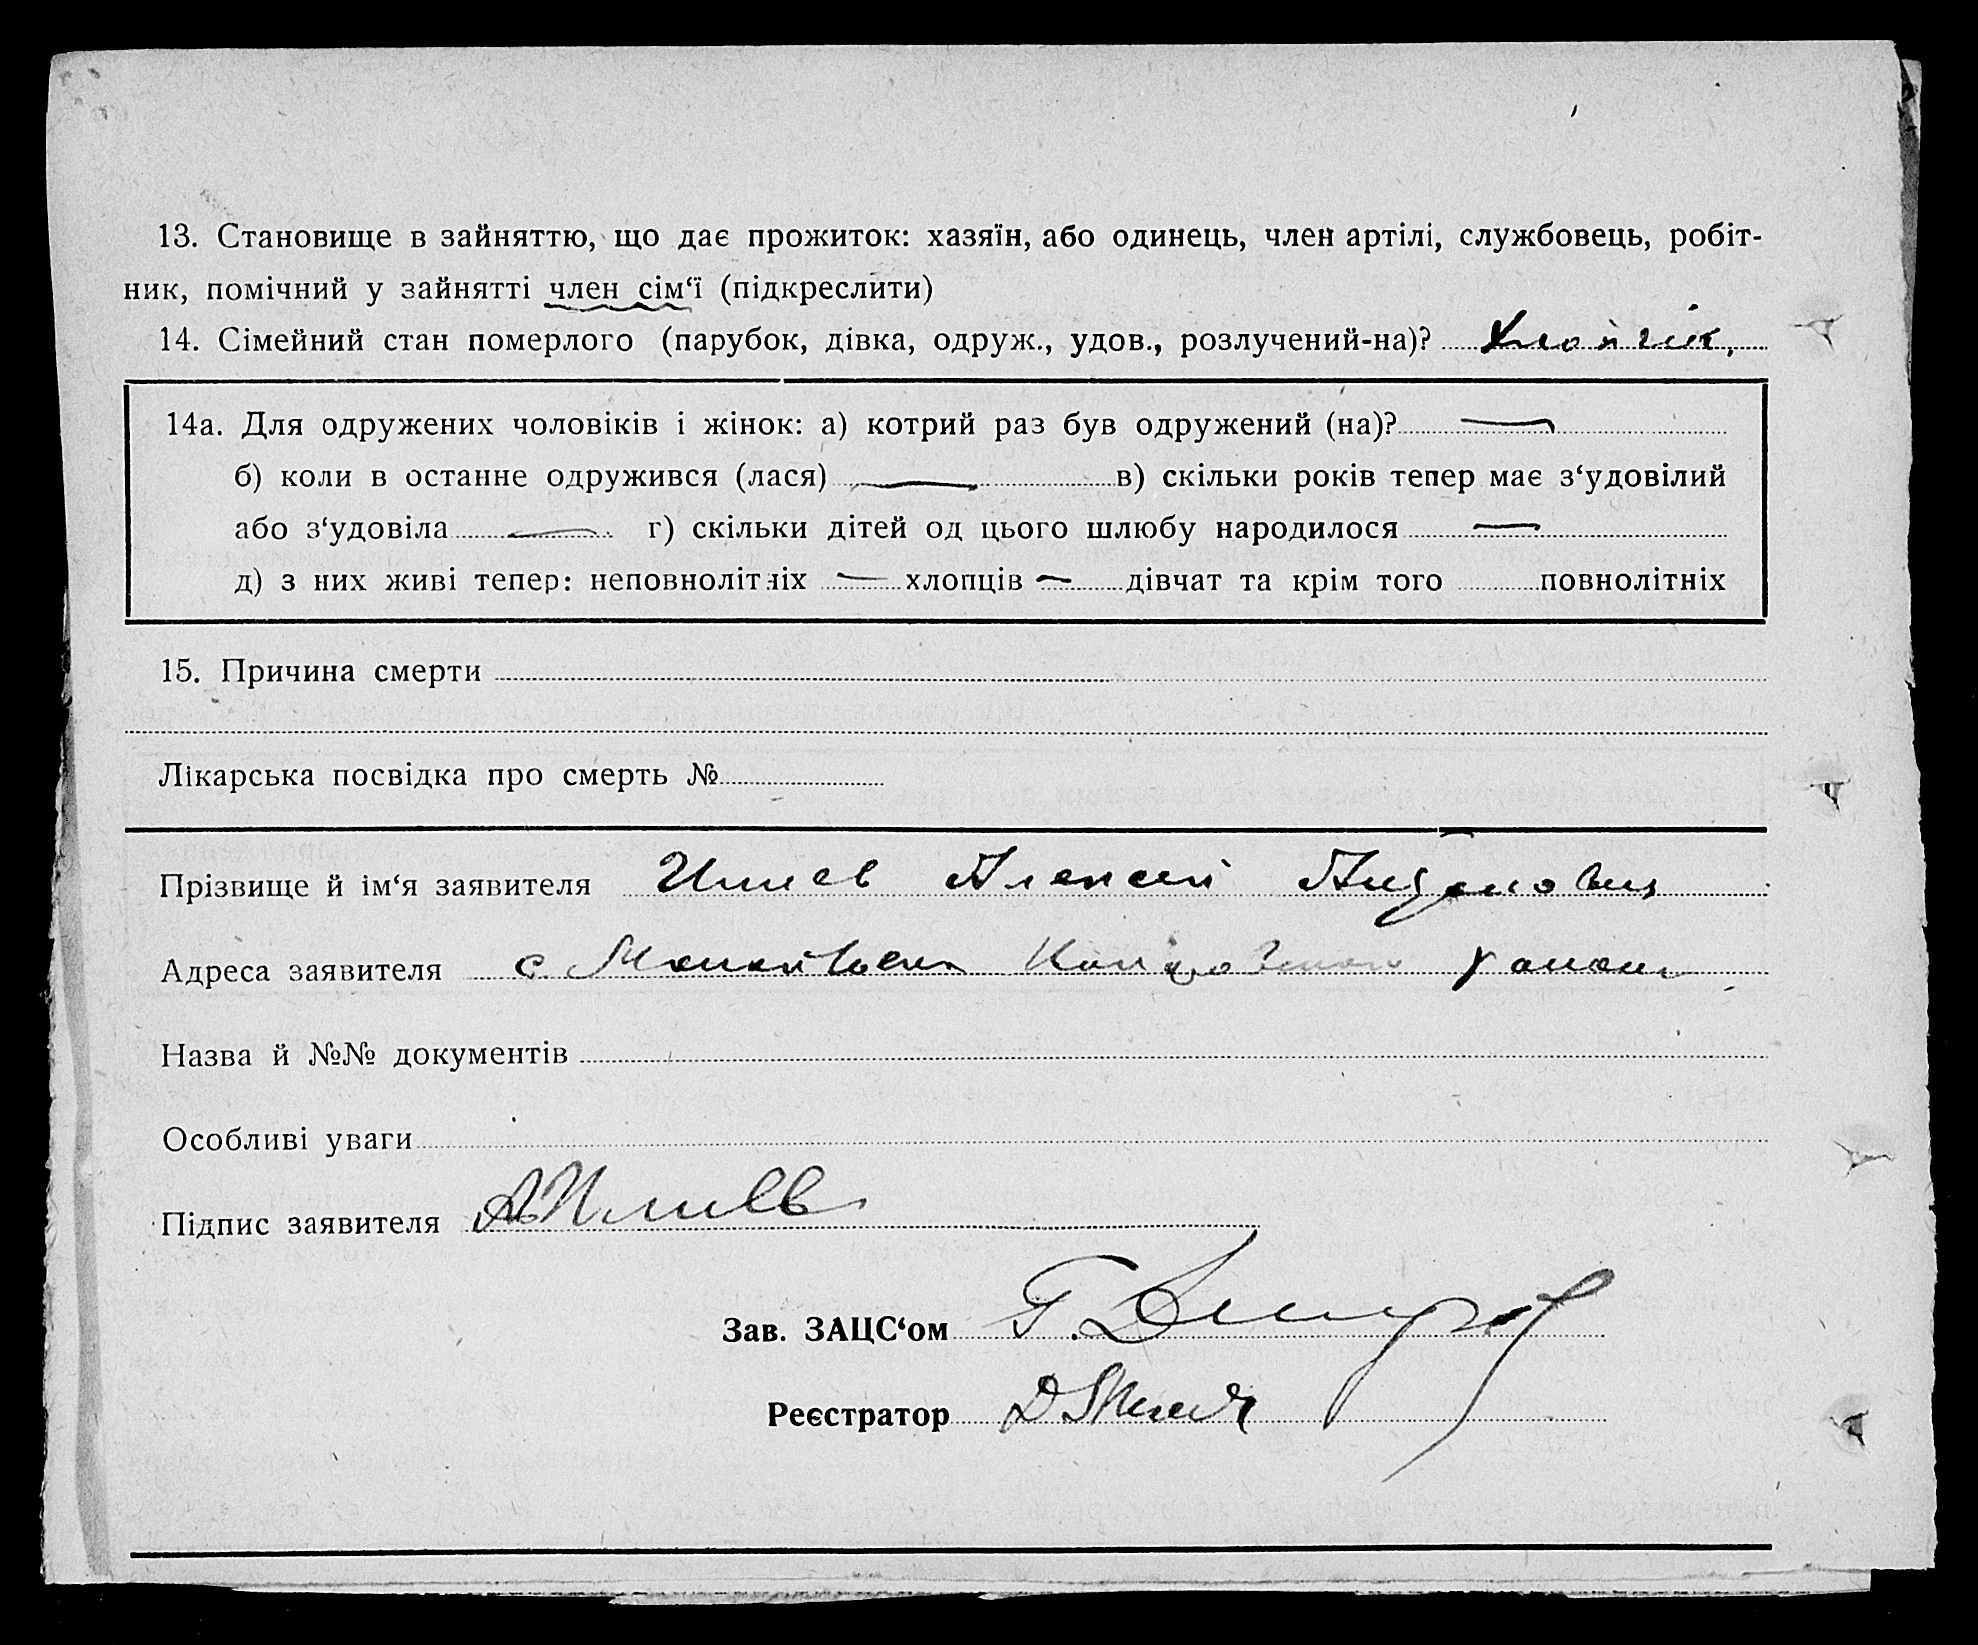 13. Становище в зайняттю, що дає прожиток: хазяїн, або одинець, член артілі, службовець, робіт-
ник, помічний у зайнятті член сім‘ї (підкреслити)
14. Сімейний стан померлого (парубок, дівка, одруж., удов., розлучений-на)? Хлопчик,
14а. Для одружених чоловіків і жінок: а) котрий раз був одружений (на)? —
б) коли в останне одружився (лася) — в) скільки років тепер має з‘удовілий
або з‘удовіла — г) скільки дітей од цього шлюбу народилося —
д) з них живі тепер: неповнолітніх — хлопців — дівчат та крім того повнолітніх
15. Причина смерти
Лікарська посвідка про смерть №
Прізвище й ім‘я заявителя Илиев Алексей
Адреса заявителя с
Назва й №№ документів
Особливі уваги
Підпис заявителя АИлиев
Зав. ЗАЦС‘ом Г.
Реєстратор